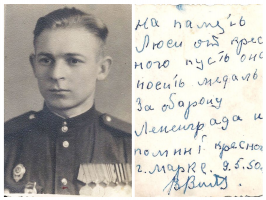 На память
Люси от крес
ного пусть она
носить медаль
За оборону
Ленинграда и
помнит кресного
г. Марке. 9.5.50.